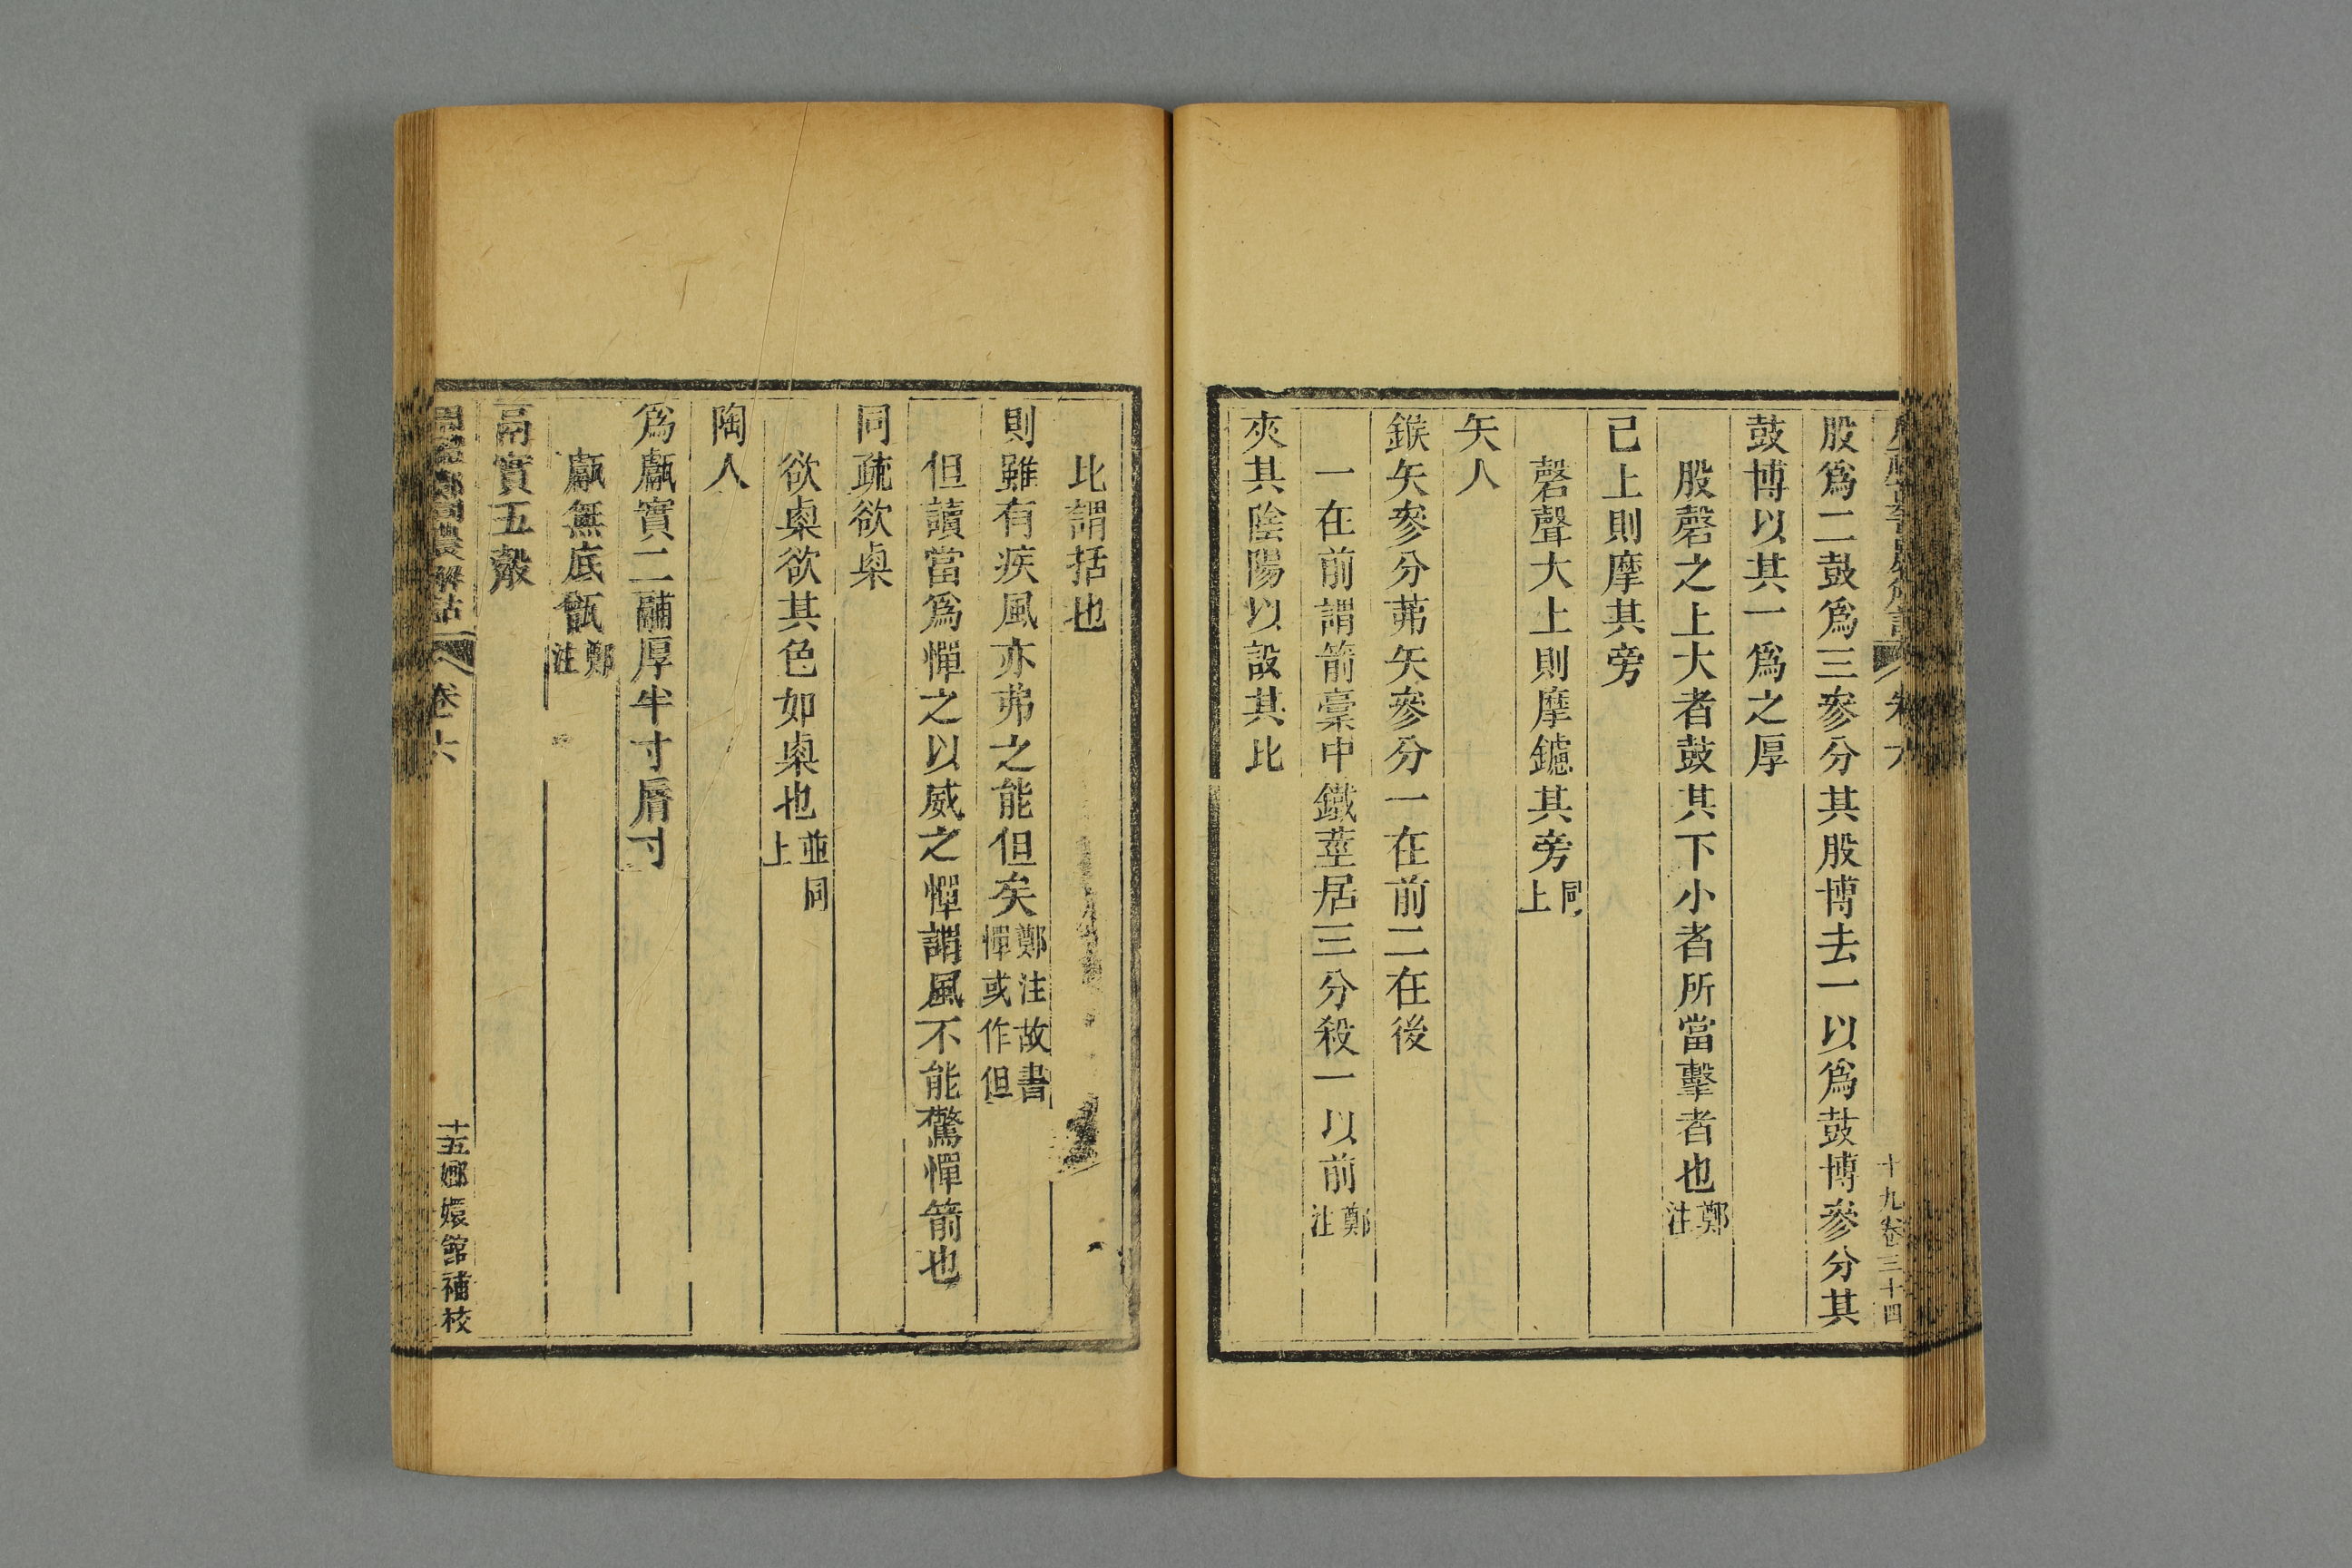 股爲二鼓爲三參分其股博去一以爲鼓博參分其
鼓博以其一爲之厚
股磬之上大者鼓其下小者所當擊者也鄭注
已上則摩其旁
磬聲大上則摩鑢其旁同上
矢人
鍭矢參分茀矢參分一在前二在後
一在前謂箭槀中鐵莖居三分殺一以前鄭注
夾其陰陽以設其比
比謂括也
則雖有疾風亦弗之能但矣鄭注故書憚或作但
但讀當爲憚之以威之憚謂風不能驚憚箭也
同疏欲㮚
欲㮚欲其色如㮚也並同上
陶人
爲甗實二鬴厚半寸脣寸
甗無底甑鄭注
鬲實五觳
卷六
十五 嫏嬛館補校
十九卷三十四